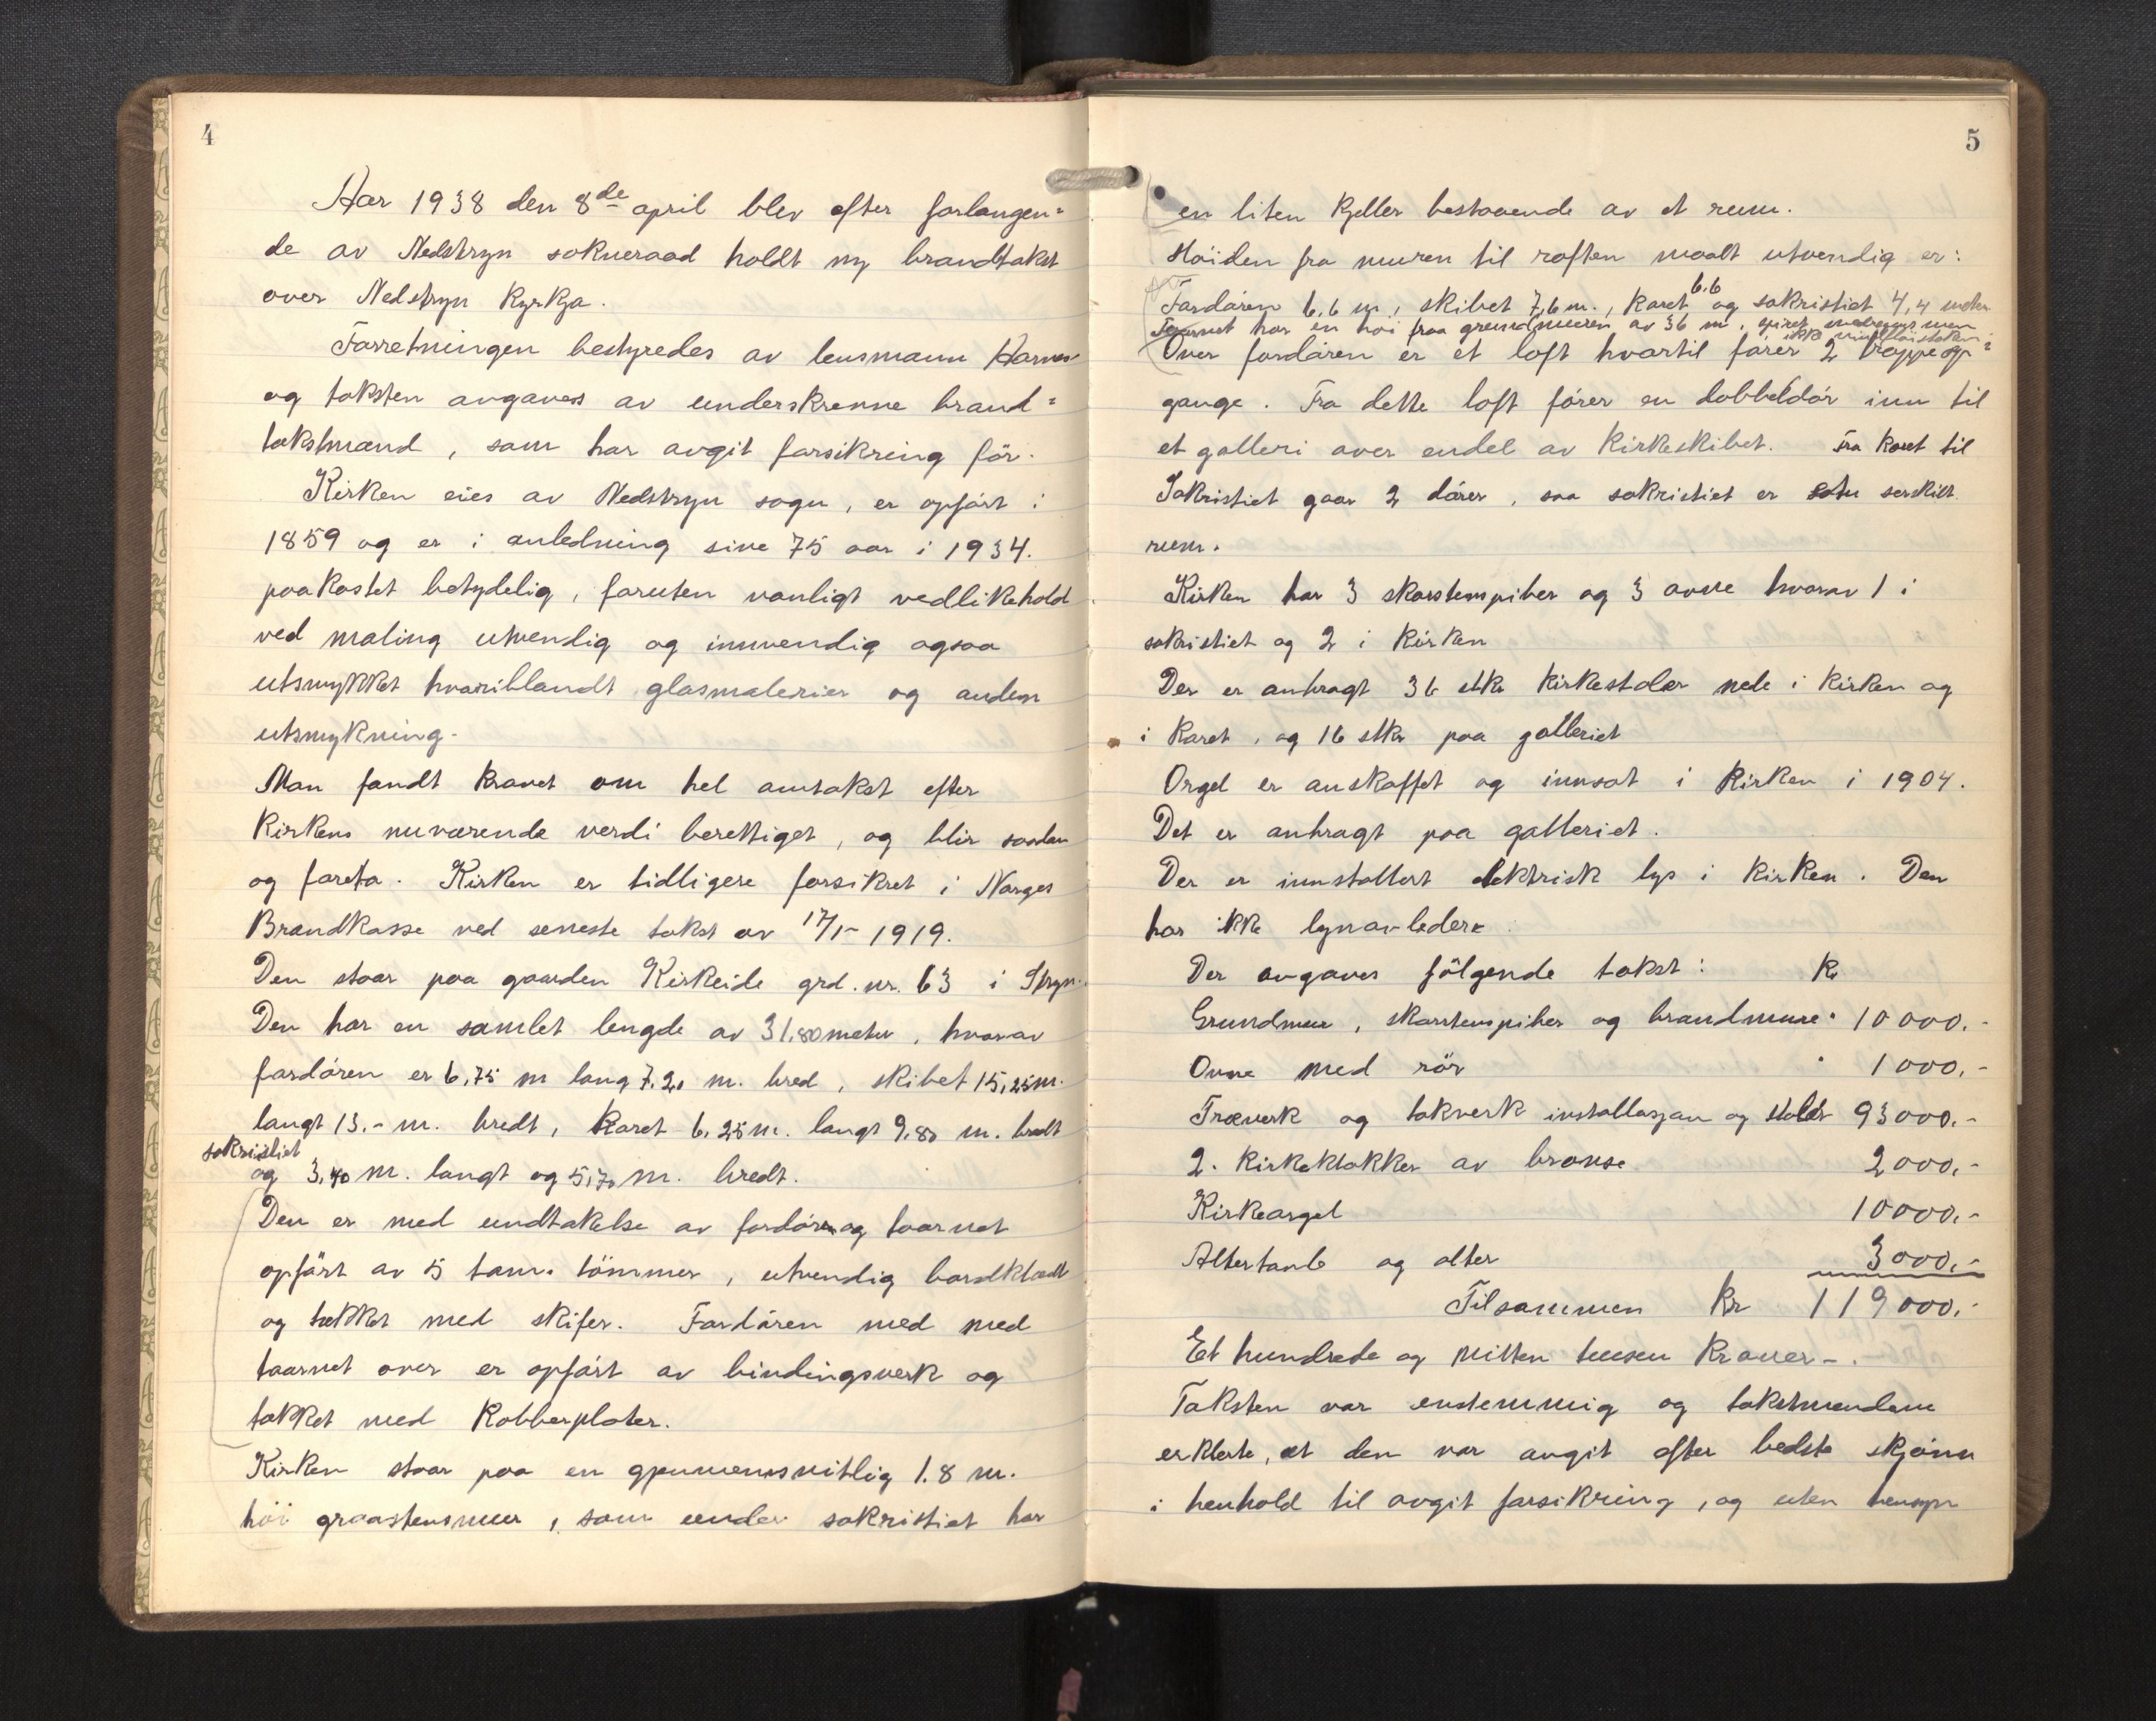 4
Aar 1938 den 8de april blev efter forlangen=
de av Nedstryn sokneraad holdt ny brandtakst
over Nedstryn Kyrkja.
Forretningen bestyredes av lensmann
og taksten avgaves av underskrevne brand=
takstmænd, som har avgit forsikring før.
Kirken eies av Nedstryn sogn, er opført i
1859 og er i anledning sine 75 aar i 1934.
paakostet betydelig, foruten vanligt vedlikehold
ved maling utvendig og innvendig ogsaa
utsmykket hvoriblandt glasmalerier og anden
utsmykning.
Man fandt kravet om hel omtakst efter
Kirkens nuværende verdi berettiget, og blir saadan
og foreta. Kirken er tidligere forsikret i Norges
Brandkasse ved seneste takst av 17/5 1919.
Den staar paa gaarden Kirkeide grd. nr. 63 i Stryn.
Den har en samlet lengde av 31,80 meter, hvorav
fordøren er 6,75 m lang 7.20 m. bred, skibet 15,25 m.
langt 13.- m. bredt, Koret 6.25 m. langt 9.80 m. bredt
sakristiet
og 3,40 m. langt og 5,70 m. bredt.
Den er med undtakelse av fordøren og taarnet
opført av 5 tom. tömmer, utvendig bordklædt
og tækket med skifer. Fordøren med med
taarnet over er opført av bindingsverk og
tækket med Kobberplater.
Kirken staar paa en gjennemsnitlig 1.8 m.
höi graastensmur, som under sakristiet har
5
en liten kjeller bestaaende av et rum.
Höiden fra muren til roften maalt utvendig er:
6.6
Fordøren 6,6 m, skibet 7,6 m., Koret, og sakristiet 4,4 meter
Taarnet har en höi fraa grundmuren av 36 m, spiret medregnet men
ikke vindfløistaken
Over fordøren er et loft hvortil fører 2 trappeop=
gange. Fra dette loft fører en dobbeldør inn til
et galleri over endel av Kirkeskibet. Fra Koret til
Sakristiet gaar 2 dører, saa sakristiet er serskilt
rum.
Kirken har 3 skorstenspiber og 3 ovne hvorav 1 i
sakristiet og 2 i Kirken
Der er anbragt 36 stk kirkestoler nede i Kirken og
i Koret, og 16 stkr paa galleriet
Orgel er anskaffet og innsat i Kirken i 1904.
Det er anbragt paa galleriet.
Der er innstallert elektrisk lys i Kirken. Den
har ikke lynavledere
Der avgaves følgende takst: Kr
Grundmur, skorstenspiber og brandmure " 10 000.-
Ovne med rör " 1 000.-
Træverk og takverk installasjon og stoler 93000.-
2. Kirkeklokker av bronse 2000.-
Kirkeorgel 10000.-
Altertavle og alter 3000.-
Tilsammen Kr 119 000.-
Et hundrede og nitten tusen Kroner-.
Taksten var enstemmig og takstmendene
erklerte, at den var avgit efter bedste skjønn
i henhold til avgit forsikring, og uten hensyn